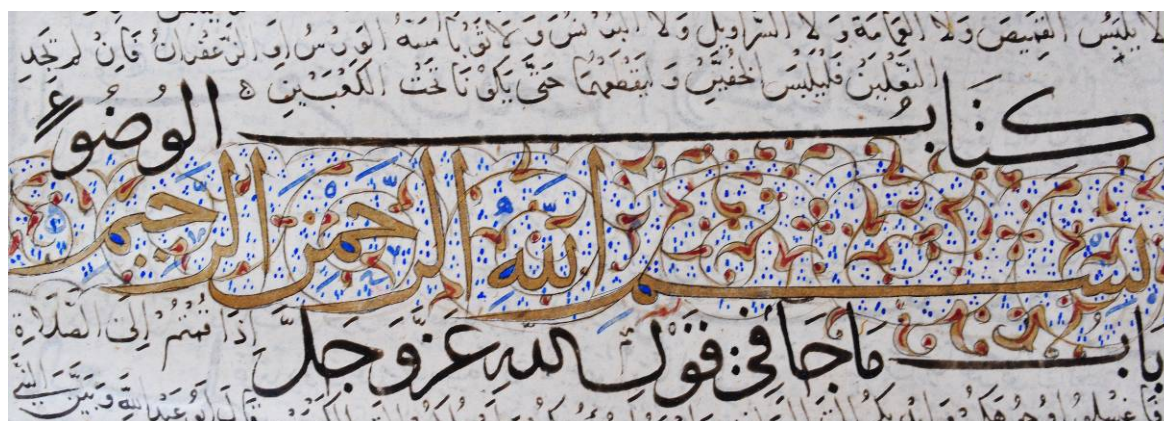 لا يلبس القميص ولا العمامة ولا السراويل ولا البرنس ولا ثوبا مسه الورس او الزعفران فان لم يجد
النعلين فليلبس الخفين وليقطعهما حتى يكونا تحت الكعبين
كتاب الوضوء
بسم الله الرحمن الرحيم
باب ما جا في قول الله عز وجل اذا قمتم الى الصلاة
فاغسلوا وجوهكم وايديكم الى قال ابو عبد الله وبين النبي